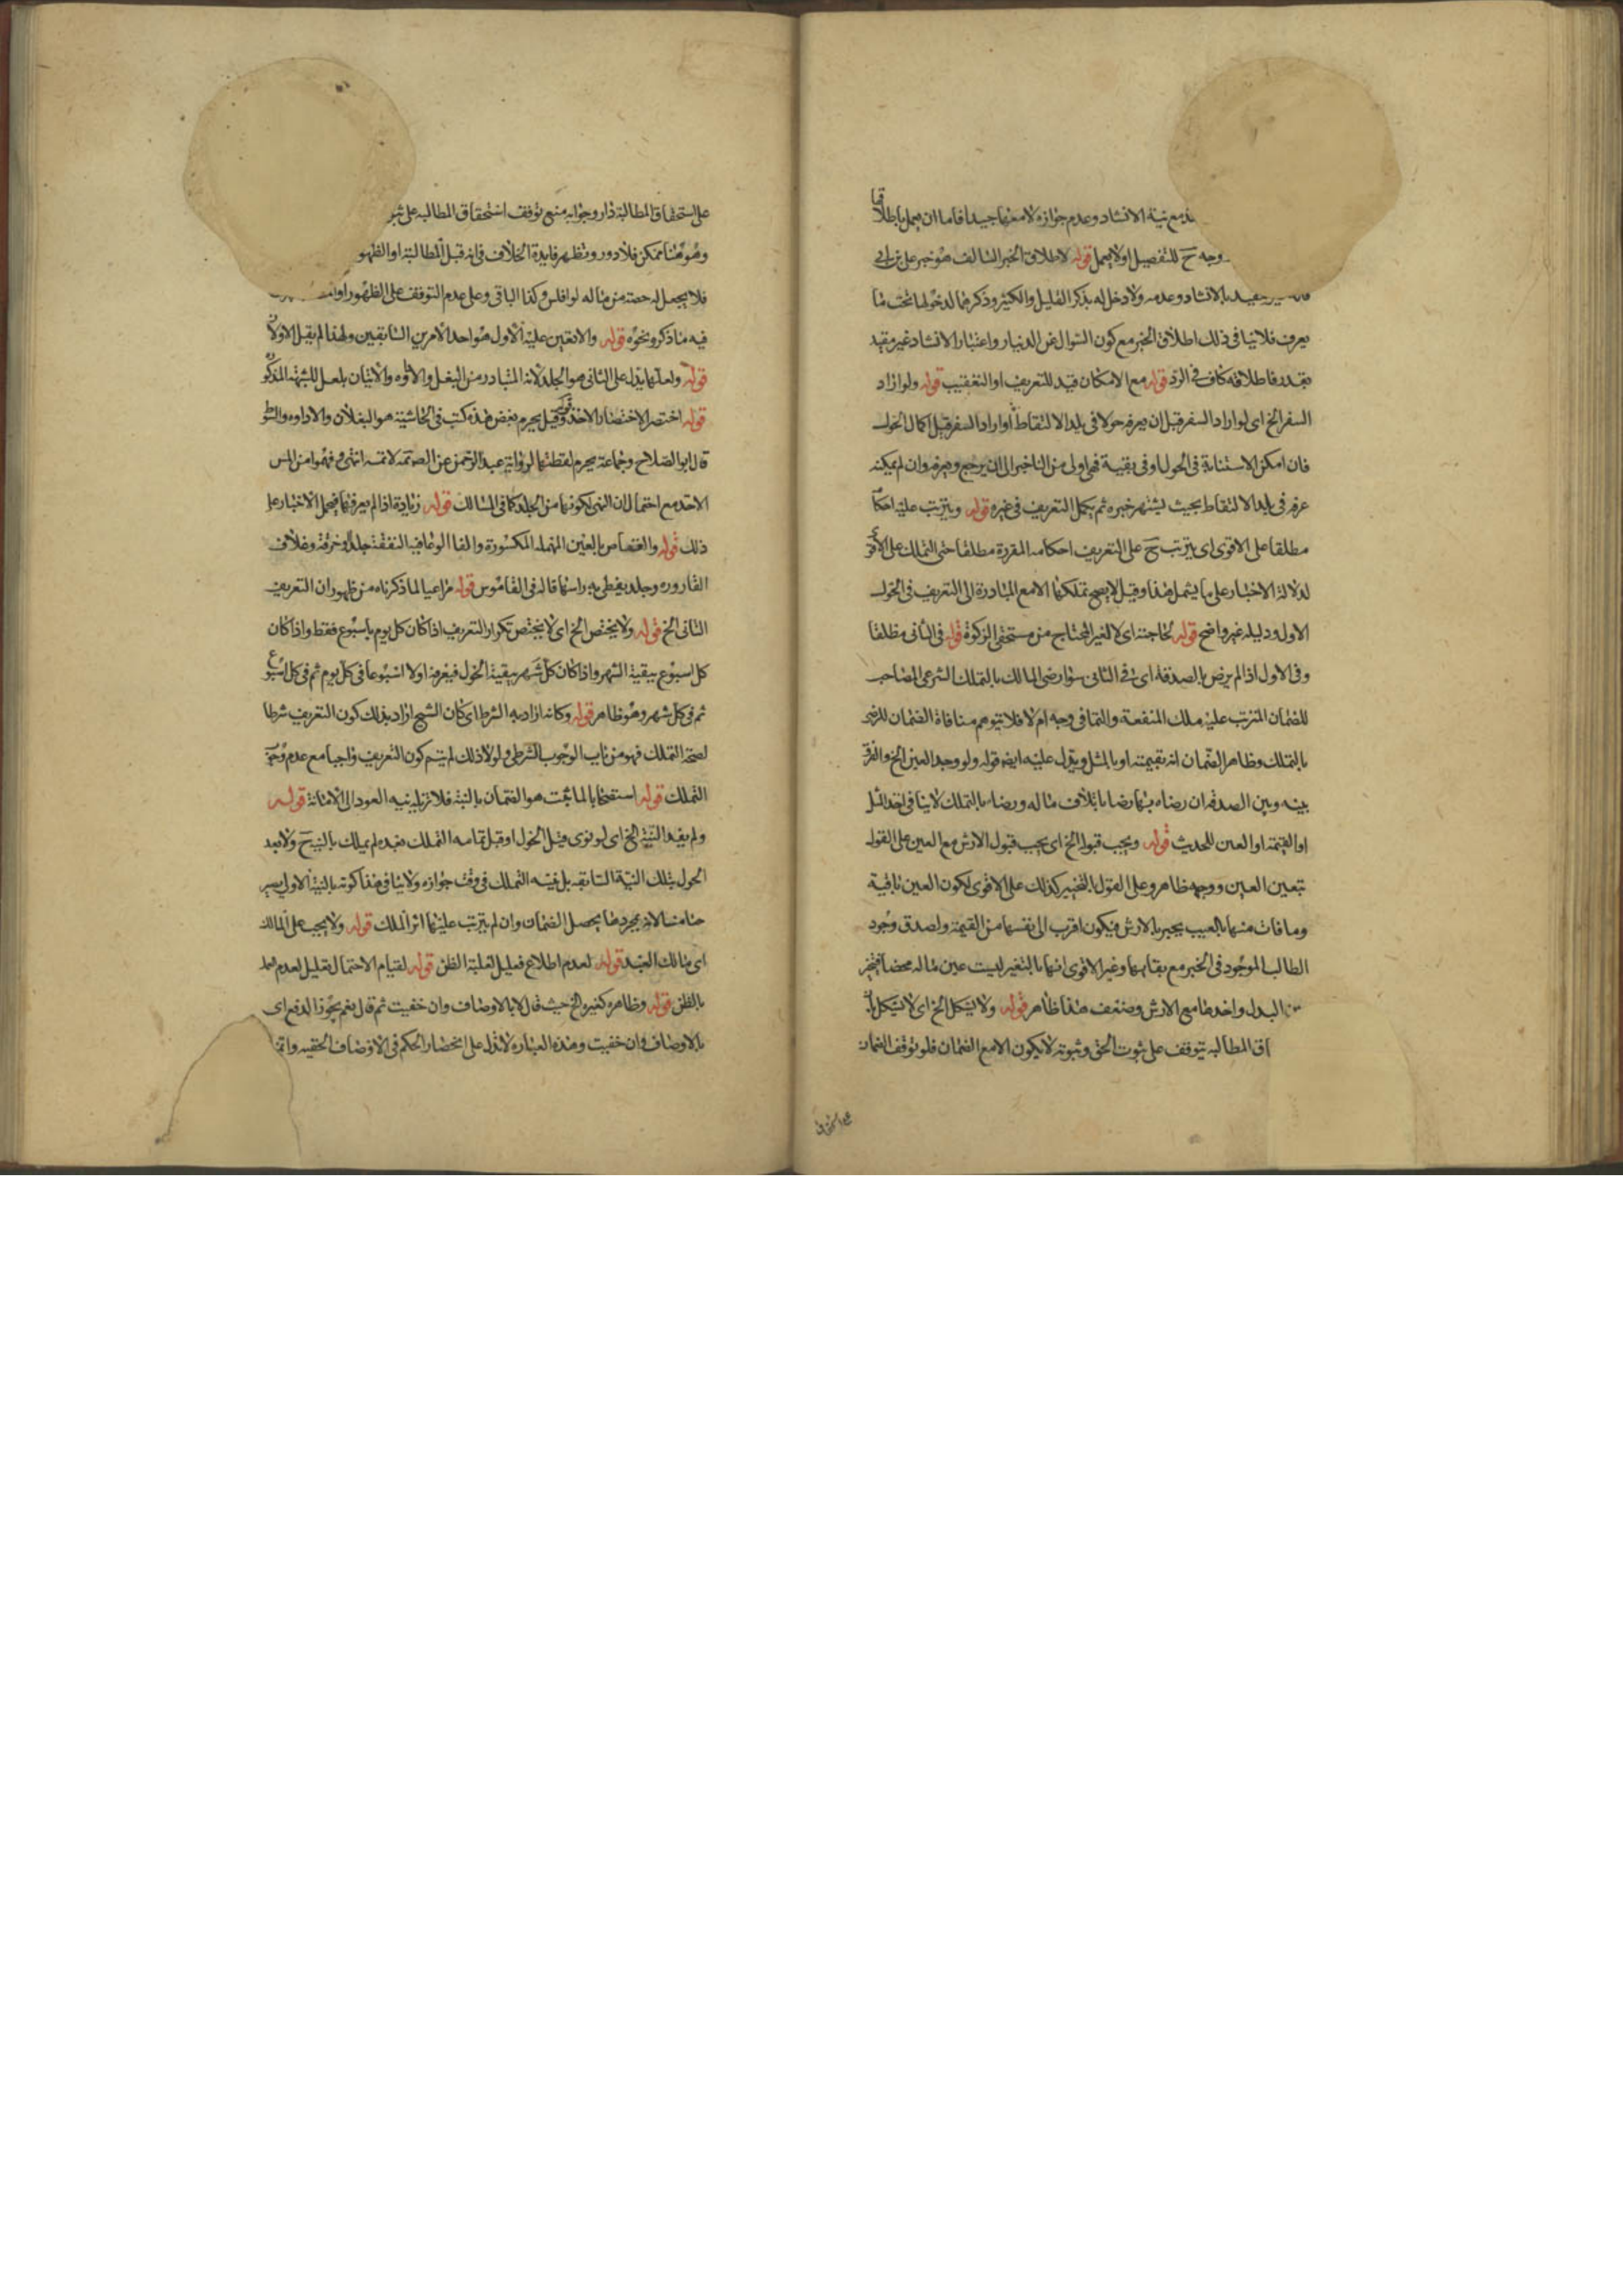 مع نية الانشاد وعدم جوازه لا معها جيدا فاما ان يعمل باطلاقها
وجه ح للتفصيل اولا يعمل قوله لاطلاق الخبر السالف هو خبر على بن ابى
بالانشاد وعدمه ولا دخل له بذكر القليل والكثير وذكرهما لدخولها تحت ما
يعرف فلا ينافى ذلك اطلاق الخبر مع كون السؤال عن الدينار واعتبار الانشاد غير مقيد
بقدر فاطلاقه كاف فى الرد قوله مع الامكان قيد للتعريف او التعقيب قوله ولو اراد
السفر الخ اى لو اراد السفر قبل ان يعرفه حولا فى بلد الالتقاط او اراد السفر قبل اكمال الحول
فان امكن الاستنابة فى الحول او فى بقيته فهى اولى من التاخير الى ان يرجع ويعرفه وان لم يمكنه
عرفه فى بلد الالتقاط بحيث يشتهر خبره ثم يكمل التعريف فى غيره قوله ويترتب عليه احكامه
مطلقا على الاقوى اى يترتب ح على التعريف احكامه المقررة مطلقا حتى التملك على الاقوى
لدلالة الاخبار على ما يشمل هذا وقيل لا يصح تملكها الا مع المبادرة الى التعريف فى الحول
الاول ودليله غير واضح قوله لحاجته اى لا لغير المحتاج من مستحقى الزكوة قوله فى الثانى مطلقا
وفى الاول اذا لم يرض بالصدقة اى فى الثانى سواء رضى المالك بالتملك الشرعى المصاحب
للضمان المترتب عليه ملك المنفعة والنما فى وجه ام لا فلا يتوهم منافاة الضمان للرضى
بالتملك وظاهر الضمان انه بقيمته او بالمثل ويدل عليه ايضه قوله ولو وجد العين الخ والفرق
بينه وبين الصدقة ان رضاه بها رضا باتلاف ماله ورضاه بالتملك لا ينافى اخذ المثل
او القيمة او العين للحديث قوله ويجب قبوله الخ اى يجب قبول الارش مع العين على القول
بتعين العين ووجهه ظاهر وعلى القول بالتخيير كذلك على الاقوى لكون العين باقية
وما فات منها بالعيب يجبر بالارش فيكون اقرب الى نفسها من القيمة ولصدق وجود
الطالب الموجود فى الخبر مع بقائها وغير الاقوى انها بالتغير ليست عين ماله محضا فيتخير
البدل واخذها مع الارش وضعف هذا ظاهر قوله ولا يشكل الخ اى لا يشكل بان
المطالبه يتوقف على ثبوت الحق وثبوته لا يكون الا مع الضمان فلو توقف الضمان
على استحقاق المطالبة دار وجوابه منع توقف استحقاق المطالبه على
وهو هنا ممكن فلا دور وتظهر فايدة الخلاف فى انه قبل المطالبة او الظهور
فلا يجعل له حصة من ماله لو افلس وكذا الباقى وعلى عدم التوقف على الظهور
فيه ما ذكر ونحوه قوله والا تعين عليه الاول هو احد الامرين السابقين ولهذا لم يقل الاولان
قوله ولعلها يدل على الثانى هو الجلد لانه المتبادر من النعل والاداوه والاتيان بلعل للشبهة المذكورة
قوله اختصر الاختصار الاخذ وقيل يحرم بعض هذه كتب فى الحاشية هو النعلان والاداوه والسوط
قال ابو الصلاح وجماعة يحرم لقطتها لرواية عبد الرحمن عن الصـ تمسه لا تمسه انتهى وفهموا من المس
الاخذ مع احتمال ان النهى لكونها من الجلد كما فى المسالك قوله زيادة اذا لم يعرفها فيحمل الاخبار على
ذلك قوله والعفاص بالعين المهمله المكسورة والفا الوعا فيه النفقة جلدا او خرقة وغلاف
القاروره وجلد يغطى به راسها قاله فى القاموس قوله مراعيا لما ذكرناه من ظهور ان التعريف
الثانى الخ قوله ولا يختص الخ اى لا يختص تكرار التعريف اذا كان كل يوم باسبوع فقط واذا كان
كل اسبوع ببقية الشهر واذا كان كل شهر ببقية الحول فيعرفه اولا اسبوعا فى كل يوم ثم فى كل اسبوع
ثم فى كل شهر وهو ظاهر قوله وكانه اراد به الشرط اى كان الشيخ اراد بذلك كون التعريف شرطا
لصحة التملك فهو من باب الوجوب الشرطى ولولا ذلك لم يتم كون التعريف واجبا مع عدم وجوب
التملك قوله استصحابا لما ثبت هو الضمان بالنية فلا تزيله نيه العود الى الامانة قوله
ولم يفد النية الخ اى لو نوى قبل الحول او قبل تمامه التملك بعده لم يملك بالنية ح ولا بعد
الحول بتلك النية السابقه بل نيه التملك فى وقت جوازه ولا ينافى هذا كونه بالنية الاولى يصير
ضامنا لانه بمجردها يحصل الضمان وان لم يترتب عليها اثر الملك قوله ولا يجب على المالك
اى مالك العبد قوله لعدم اطلاع تعليل لغلبة الظن قوله لقيام الاحتمال تعليل لعدم
بالظن قوله وظاهره كغيره الخ حيث قال الا بالاوصاف وان خفيت ثم قال نعم يجوز الدفع اى
بالاوصاف وان خفيت وهذه العباره لا تدل على انحصار الحكم فى الاوصاف الخفيه